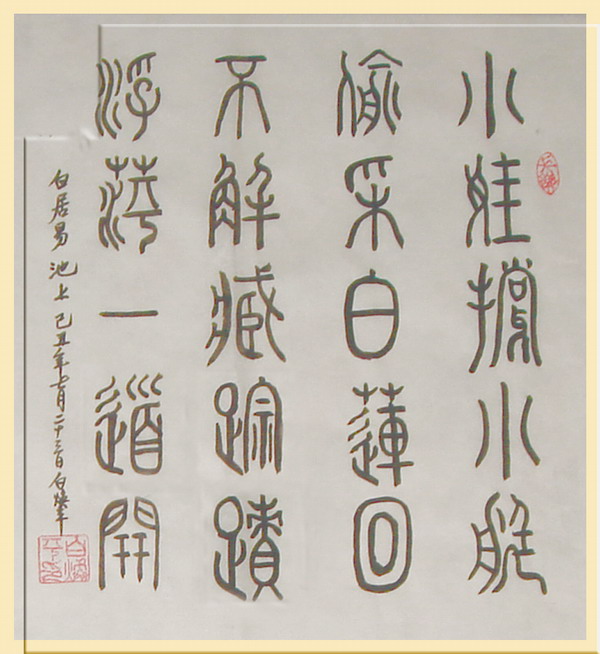 小娃撐小艇
偷采白蓮回
不解臧踪蹟
浮萍一道開
白居易 池上 己丑年七月二十三日 白